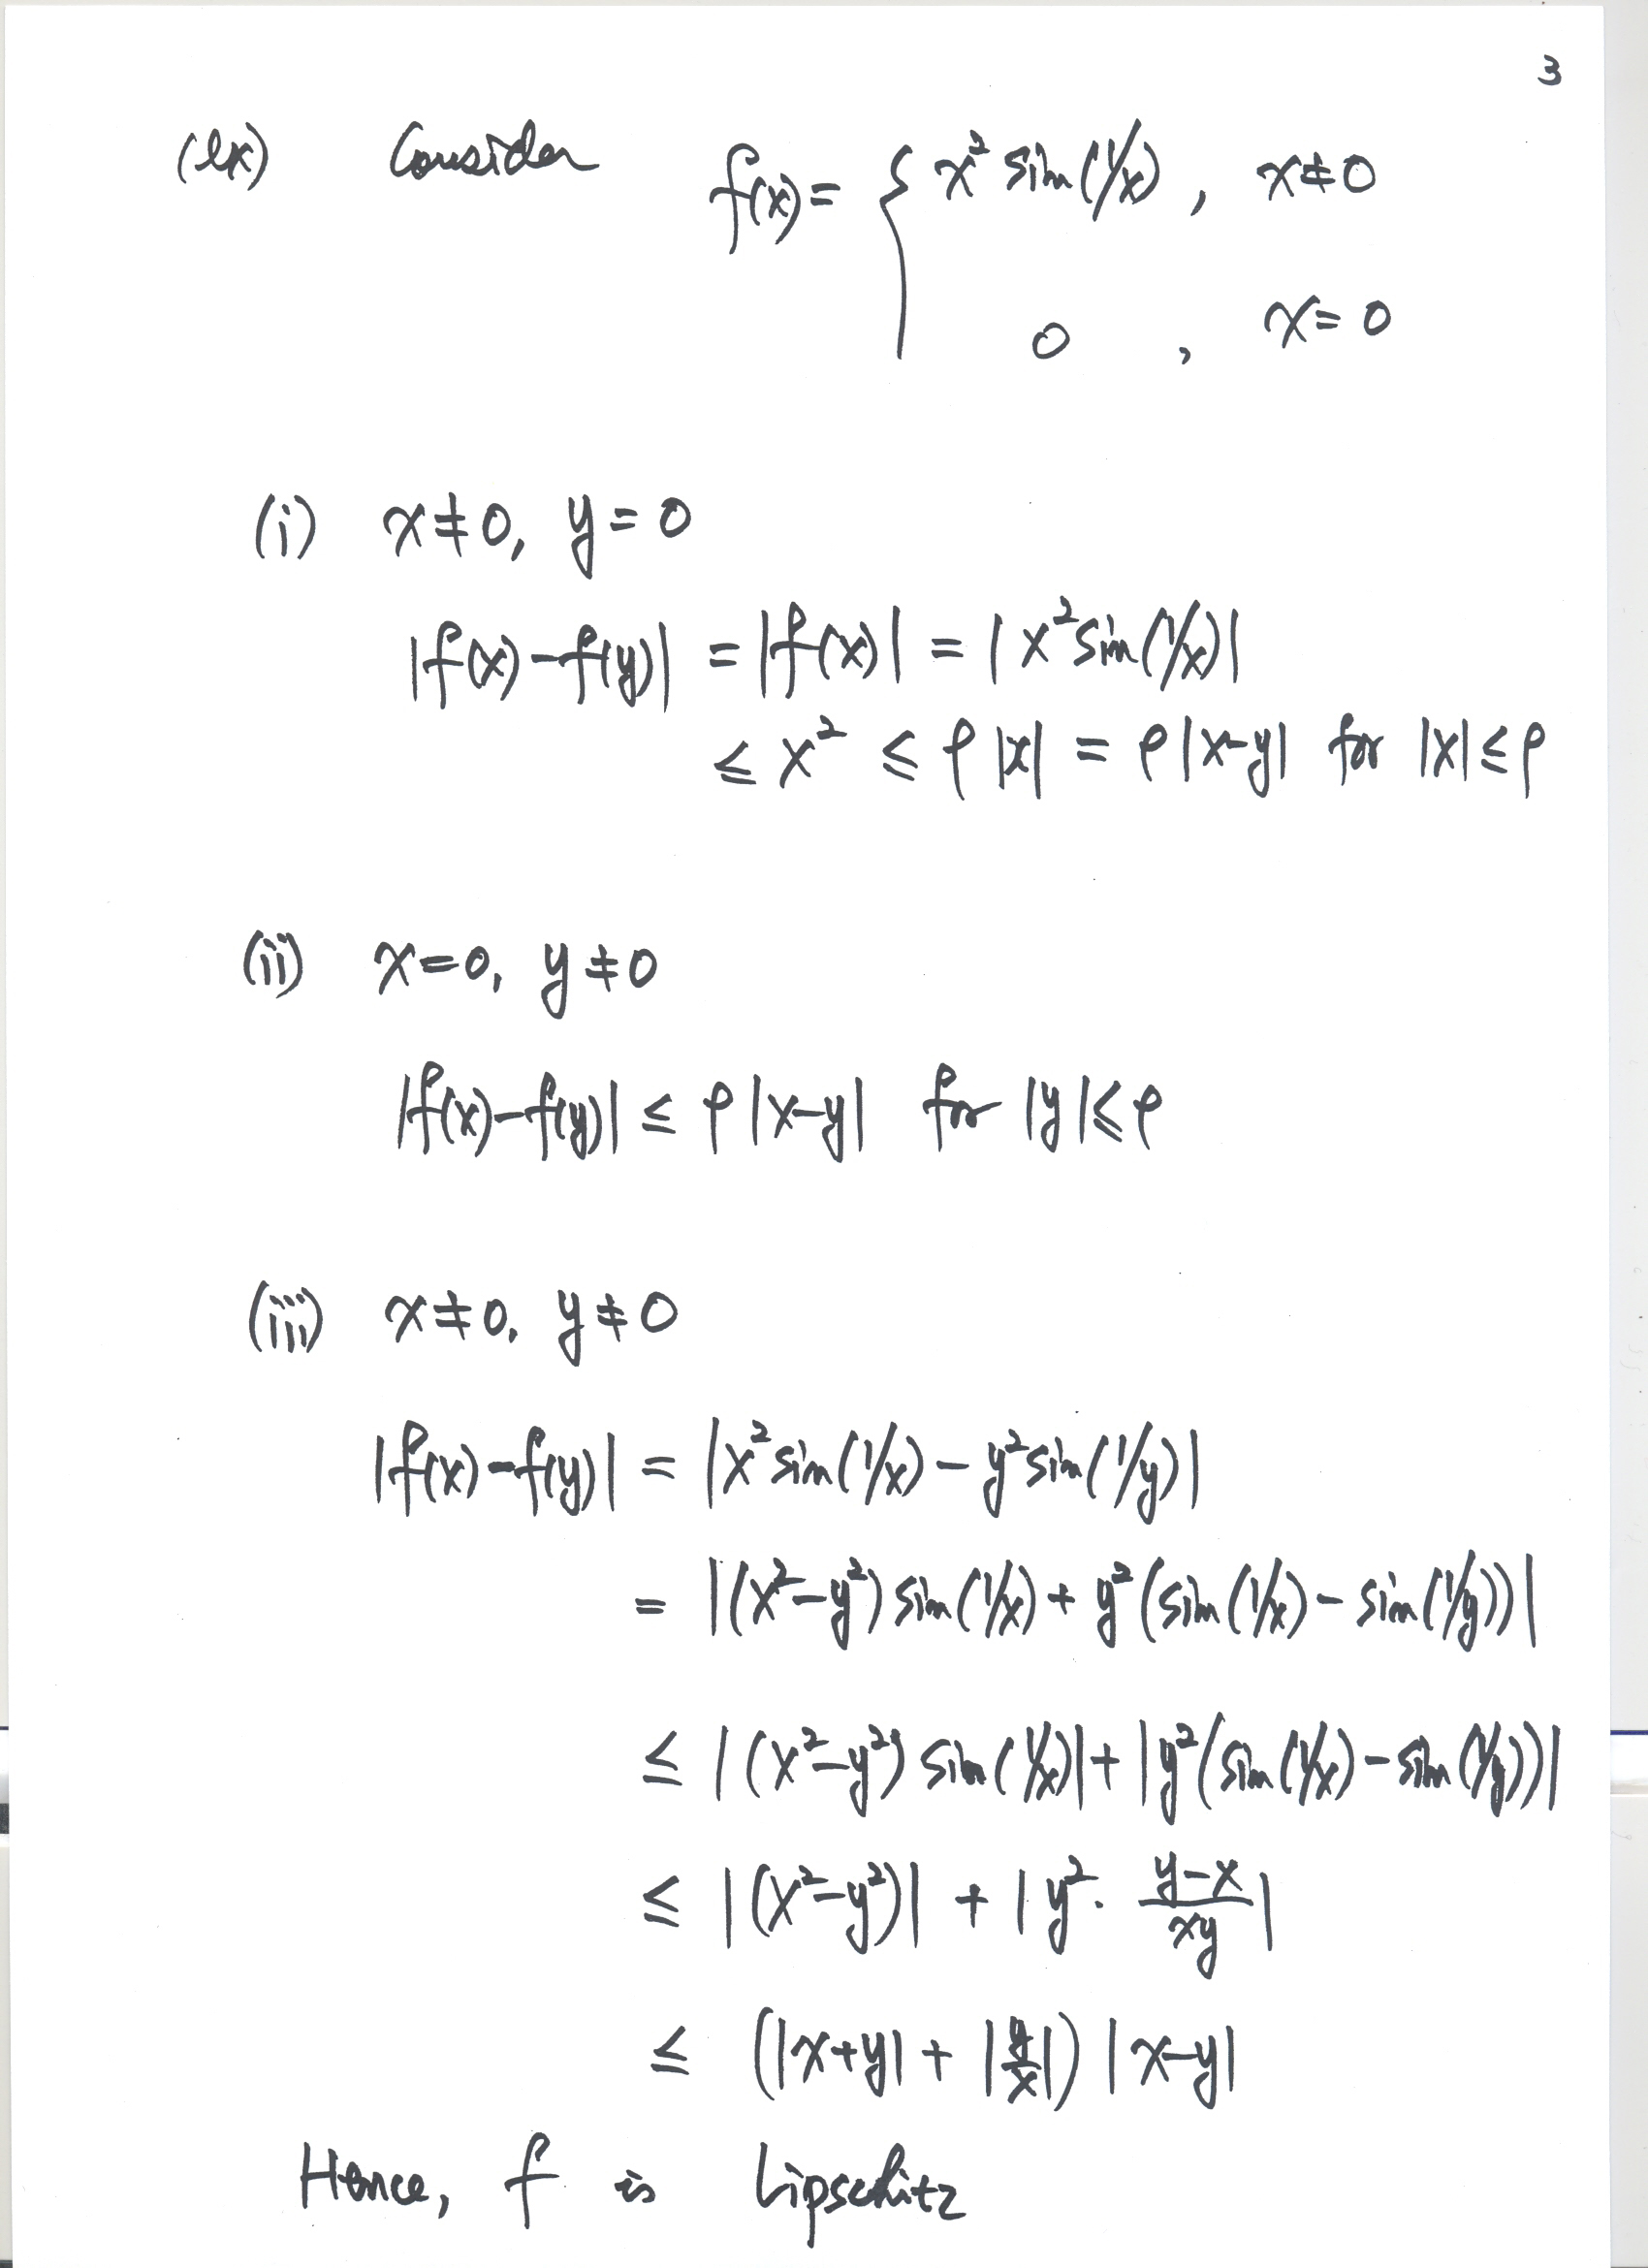 3
(ex) Consider f(x) = { x² sin(1/x) , x≠0
0 , x=0
(i) x≠0, y=0
|f(x)-f(y)| = |f(x)| = |x² sin(1/x)|
≤ x² ≤ ρ|x| = ρ|x-y| for |x|≤ρ
(ii) x=0, y≠0
|f(x)-f(y)| ≤ ρ|x-y| for |y|≤ρ
(iii) x≠0, y≠0
|f(x)-f(y)| = |x² sin(1/x) - y² sin(1/y)|
= |(x²-y²) sin(1/x) + y² (sin(1/x) - sin(1/y))|
≤ |(x²-y²) sin(1/x)| + |y² (sin(1/x) - sin(1/y))|
≤ |(x²-y²)| + |y² · (y-x)/(xy)|
≤ (|x+y| + |y/x|) |x-y|
Hence, f is Lipschitz